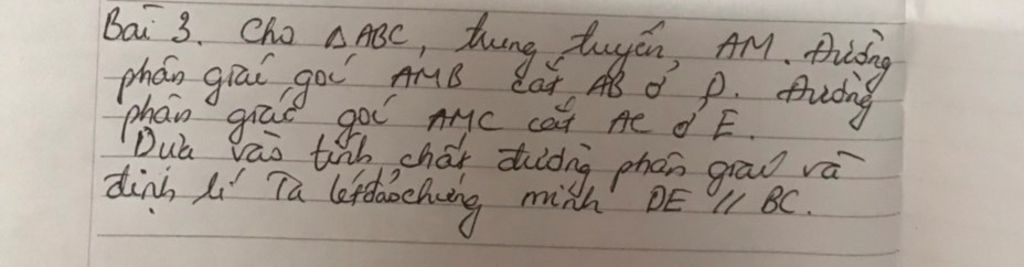 Bài 3. Cho △ABC, trung tuyến, AM. Đường
phân giác góc AMB cắt AB ở D. Đường
phân giác góc AMC cắt AC ở E.
Dựa vào tính chất đường phân giác và
định lí Ta lét đảo chứng minh DE // BC.